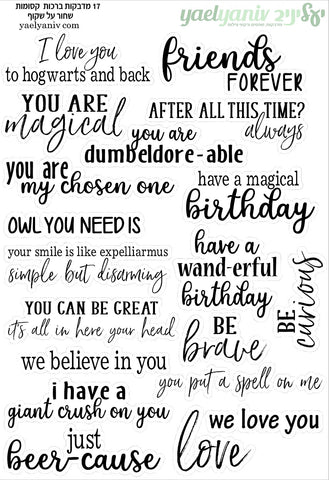 17 מדבקות ברכות קסומות
שחור על שקוף
yaelyaniv.com
yaelyaniv יעליניב
I love you
to hogwarts and back
friends
FOREVER
YOU ARE
magical
AFTER ALL THIS TIME?
always
you are
dumbeldore-able
you are
my chosen one
have a magical
birthday
OWL YOU NEED IS
your smile is like expelliarmus
simple but disarming
have a
wand-erful
birthday
YOU CAN BE GREAT
it's all in here your head
BE
brave
BE
curious
we believe in you
you put a spell on me
i have a
giant crush on you
we love you
just
beer-cause
love